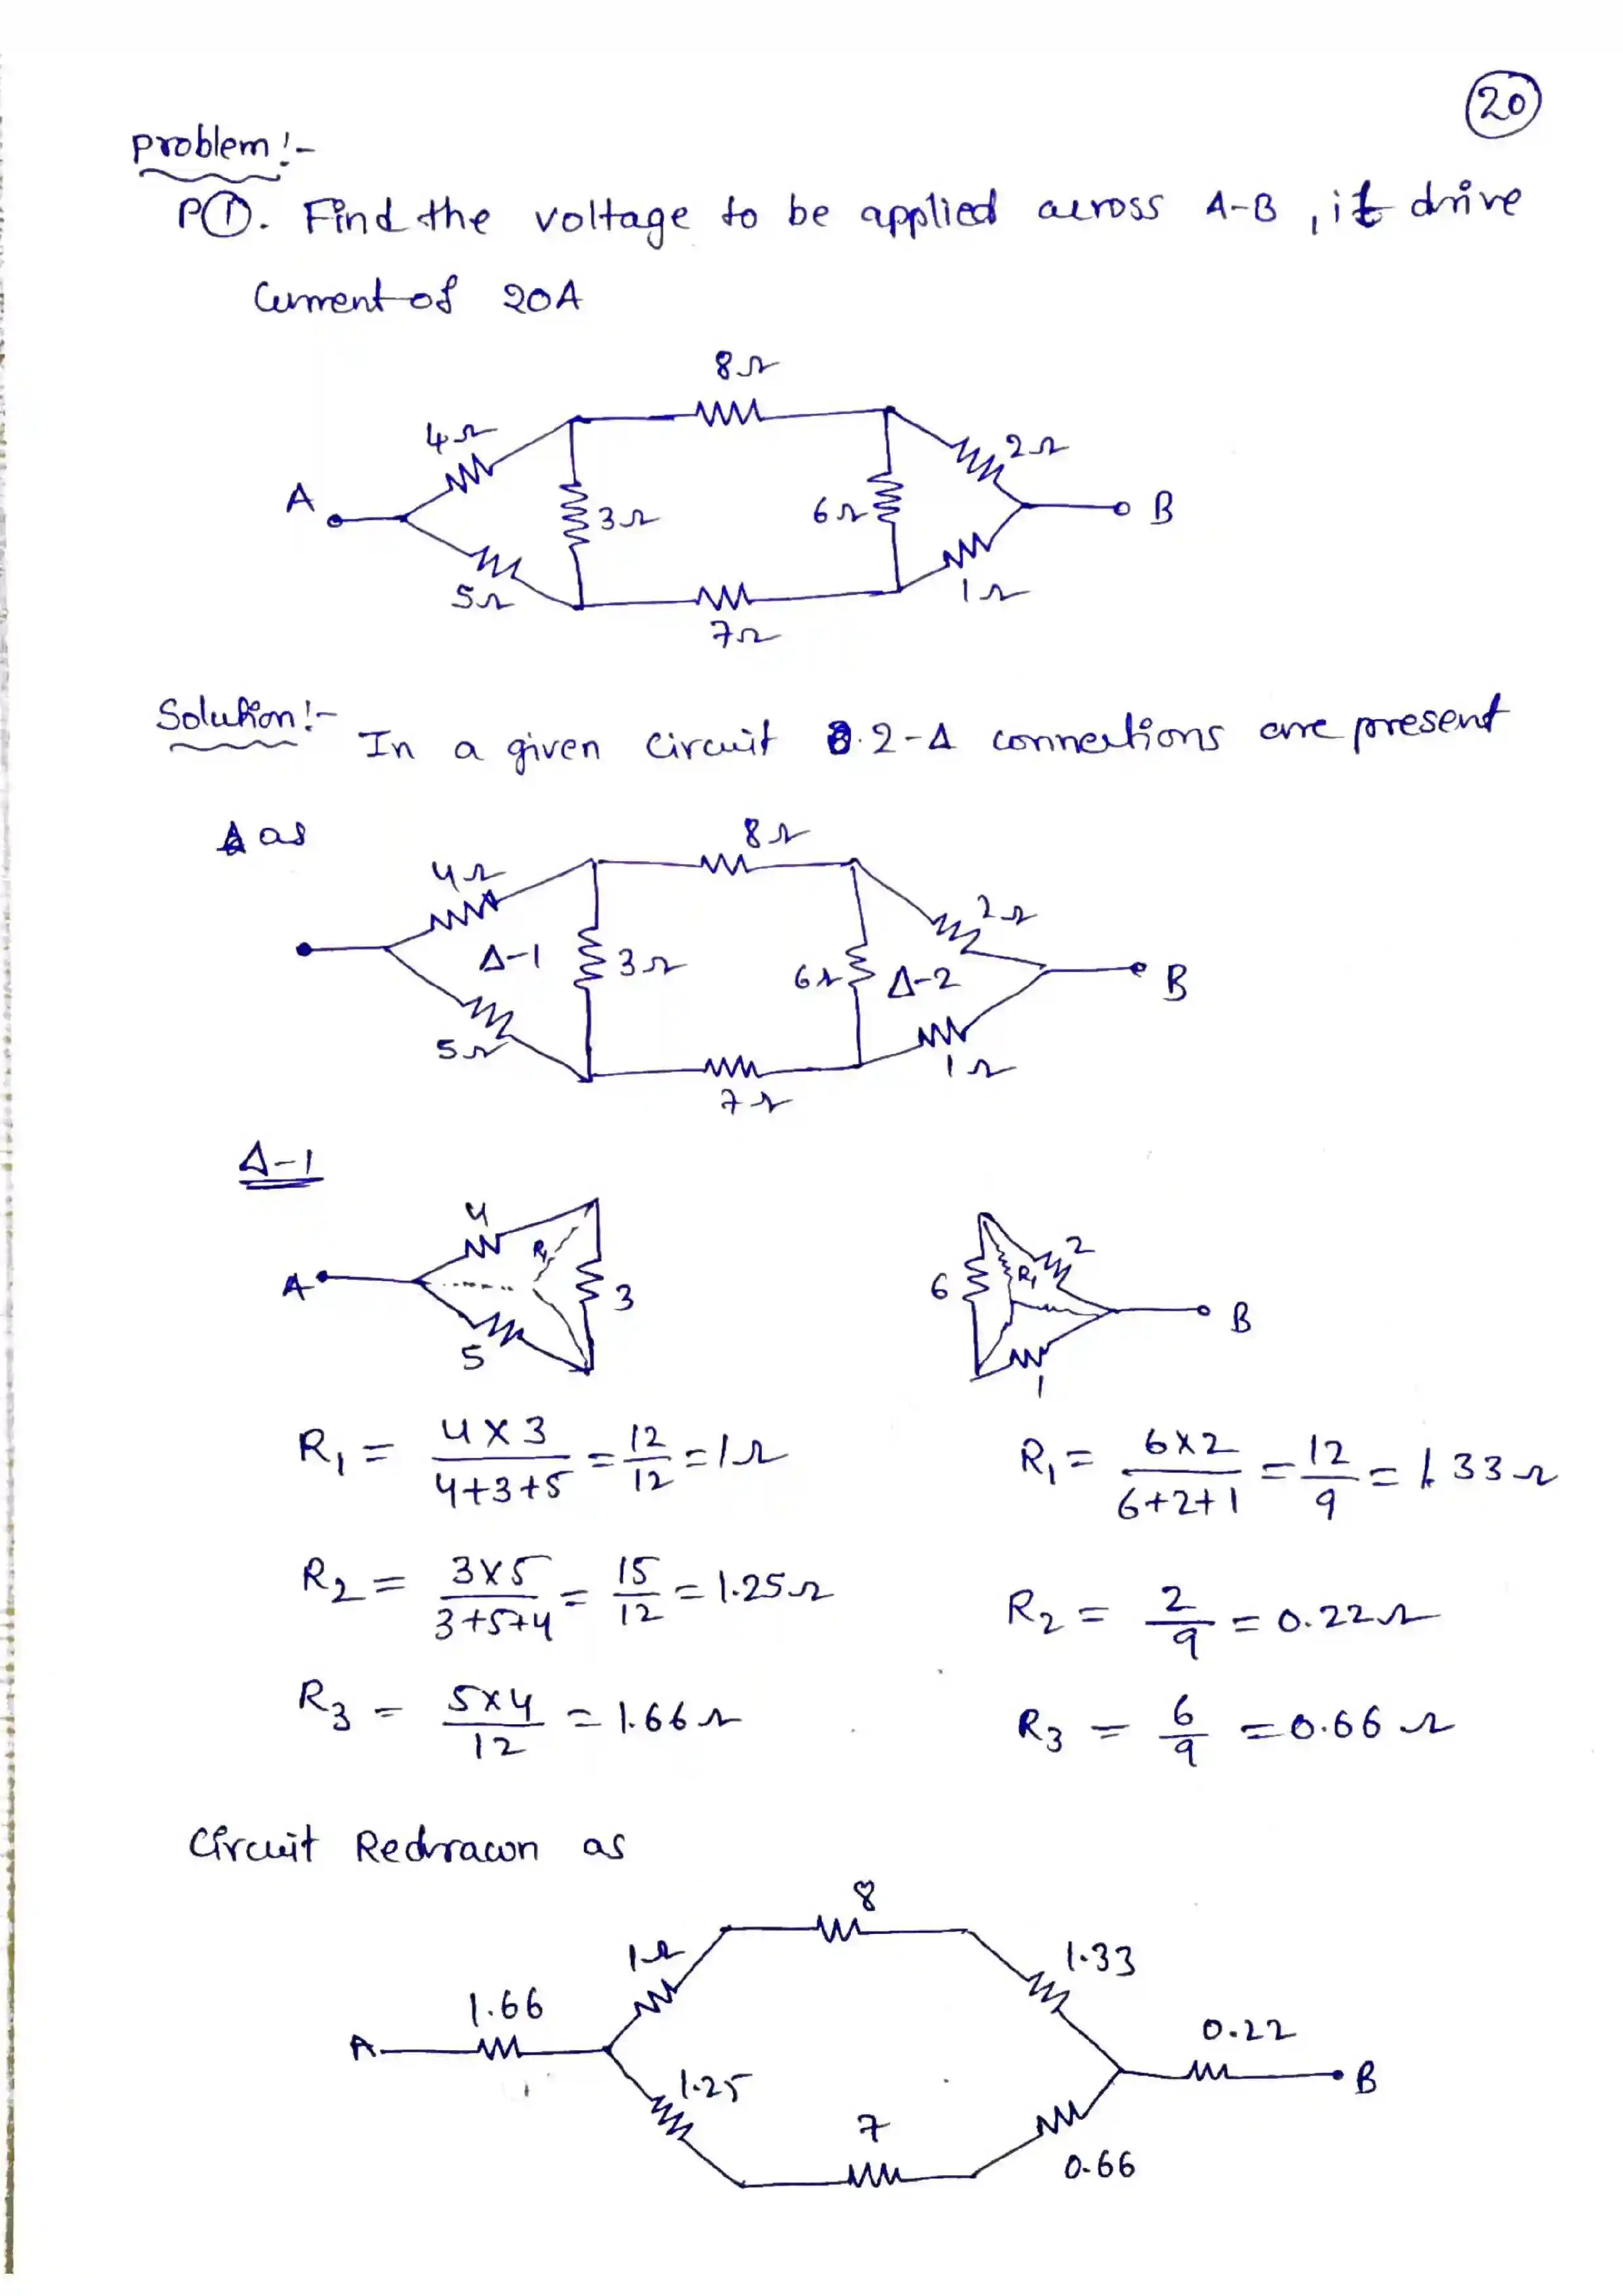 20
Problem:-
P①. Find the voltage to be applied across A-B, it drive
Current of 20A
8Ω
4Ω
2Ω
A
3Ω
6Ω
B
5Ω
1Ω
7Ω
Solution:- In a given circuit 2-Δ connections are present
as
8Ω
4Ω
2Ω
Δ-1
3Ω
6Ω
Δ-2
B
5Ω
1Ω
7Ω
Δ-1
4
R1
A
3
5
2
6
R1
B
1
R1 = 4×3/4+3+5 = 12/12 = 1Ω
R1 = 6×2/6+2+1 = 12/9 = 1.33Ω
R2 = 3×5/3+5+4 = 15/12 = 1.25Ω
R2 = 2/9 = 0.22Ω
R3 = 5×4/12 = 1.66Ω
R3 = 6/9 = 0.66Ω
Circuit Redrawn as
8
1Ω
1.33
1.66
A
0.22
B
1.25
7
0.66